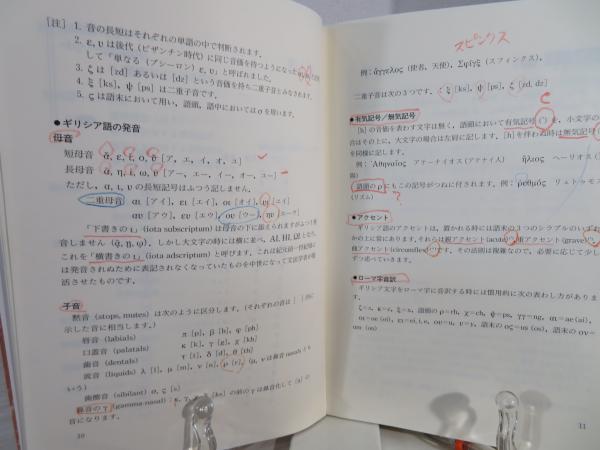 [注] 1. 音の長短はそれぞれの単語の中で判断されます。
2. ε, υ は後代（ビザンチン時代）に同じ音価を持つようになった
して「単なる（プシーロン）ε, υ」と呼ばれました。
3. ζ は [zd] あるいは [dz] という音価を持ち二重子音とみなされます。
4. ξ [ks], ψ [ps] は二重子音です。
5. ς は語末において用い, 語頭, 語中においては σ を用います。
●ギリシア語の発音
母音
短母音 ᾰ, ε, ῐ, ο, ῠ [ア, エ, イ, オ, ユ]
長母音 ᾱ, η, ῑ, ω, ῡ [アー, エー, イー, オー, ユー]
ただし, α, ι, υ の長短記号はふつう記しません。
二重母音 αι [アイ], ει [エイ], οι [オイ], υι
αυ [アウ], ευ [エウ], ου [ウー], ηυ [エーウ]
「下書きの ι」(iota subscript) は母音の下に添えられますがふつう発
音しません (ᾳ, ῃ, ῳ)。しかし大文字の時には横に並べ, ΑΙ, ΗΙ, ΩΙ となり,
これを「横書きの ι」(iota adscript) と呼びます。これは紀元前一世紀頃に
は発音されぬために表記されなくなっていたものを中世になって文法学者が復
活させたものです。
子音
黙音 (stops, mutes) は次のように区分します。（それぞれの音は [ ] 内に
示した音に相当します。）
唇音 (labials) π [p], β [b], φ [ph]
口蓋音 (palatals) κ [k], γ [g], χ [kh]
歯音 (dentals) τ [t], δ [d], θ [th]
流音 (liquids) λ [l], μ [m], ν [n], ρ [r], (μ, ν は鼻音 nasals とも
いう)
歯擦音 (sibilant) σ, ς [s]
鼻音の γ (gamma-nasal) : κ, γ, χ, ξ [ks] の前の γ は鼻音化して
音になります。
30
スピンクス
例：ἄγγελος (使者, 天使), Σφίγξ (スフィンクス),
二重子音は次の3つです。: ξ [ks], ψ [ps], ζ [zd, dz]
C
●有気記号/無気記号
[h] の音価を表わす文字は無く, 語頭において有気記号 (῾) を, 小文字の
音はその上に, 大文字の場合は左肩に記します。[h] を伴わぬ時は無気記号
を同様に記します。
例：᾿Αθηναῖος アテーナイオス (アテナイ人) ἥλιος ヘーリオス
語頭の ρ にもこの記号がつねに付されます。例：ῥυθμός リュトゥモス
(リズム)
?
●アクセント
ギリシア語のアクセントは, 置かれる時には語末の3つのシラブルのいずれ
かの上に置かれます。それらは鋭アクセント (acute), 重アクセント (grave),
曲アクセント (circumflex) です。その法則は複雑なので, 必要に応じて少し
ずつ述べていきます。
●ローマ字音訳
ギリシア文字をローマ字に音訳する時には慣用的に次の表わし方がありま
す。
ζ=z, κ=c, ξ=x, 語頭の ρ=rh, χ=ch, ψ=ps, γγ=ng, αι=ae (ai),
οι=oe (oi), ει=ei, i, e, ου=u, υ=y, 語末の ος=us (os), 語末の ον=
um (on)
31